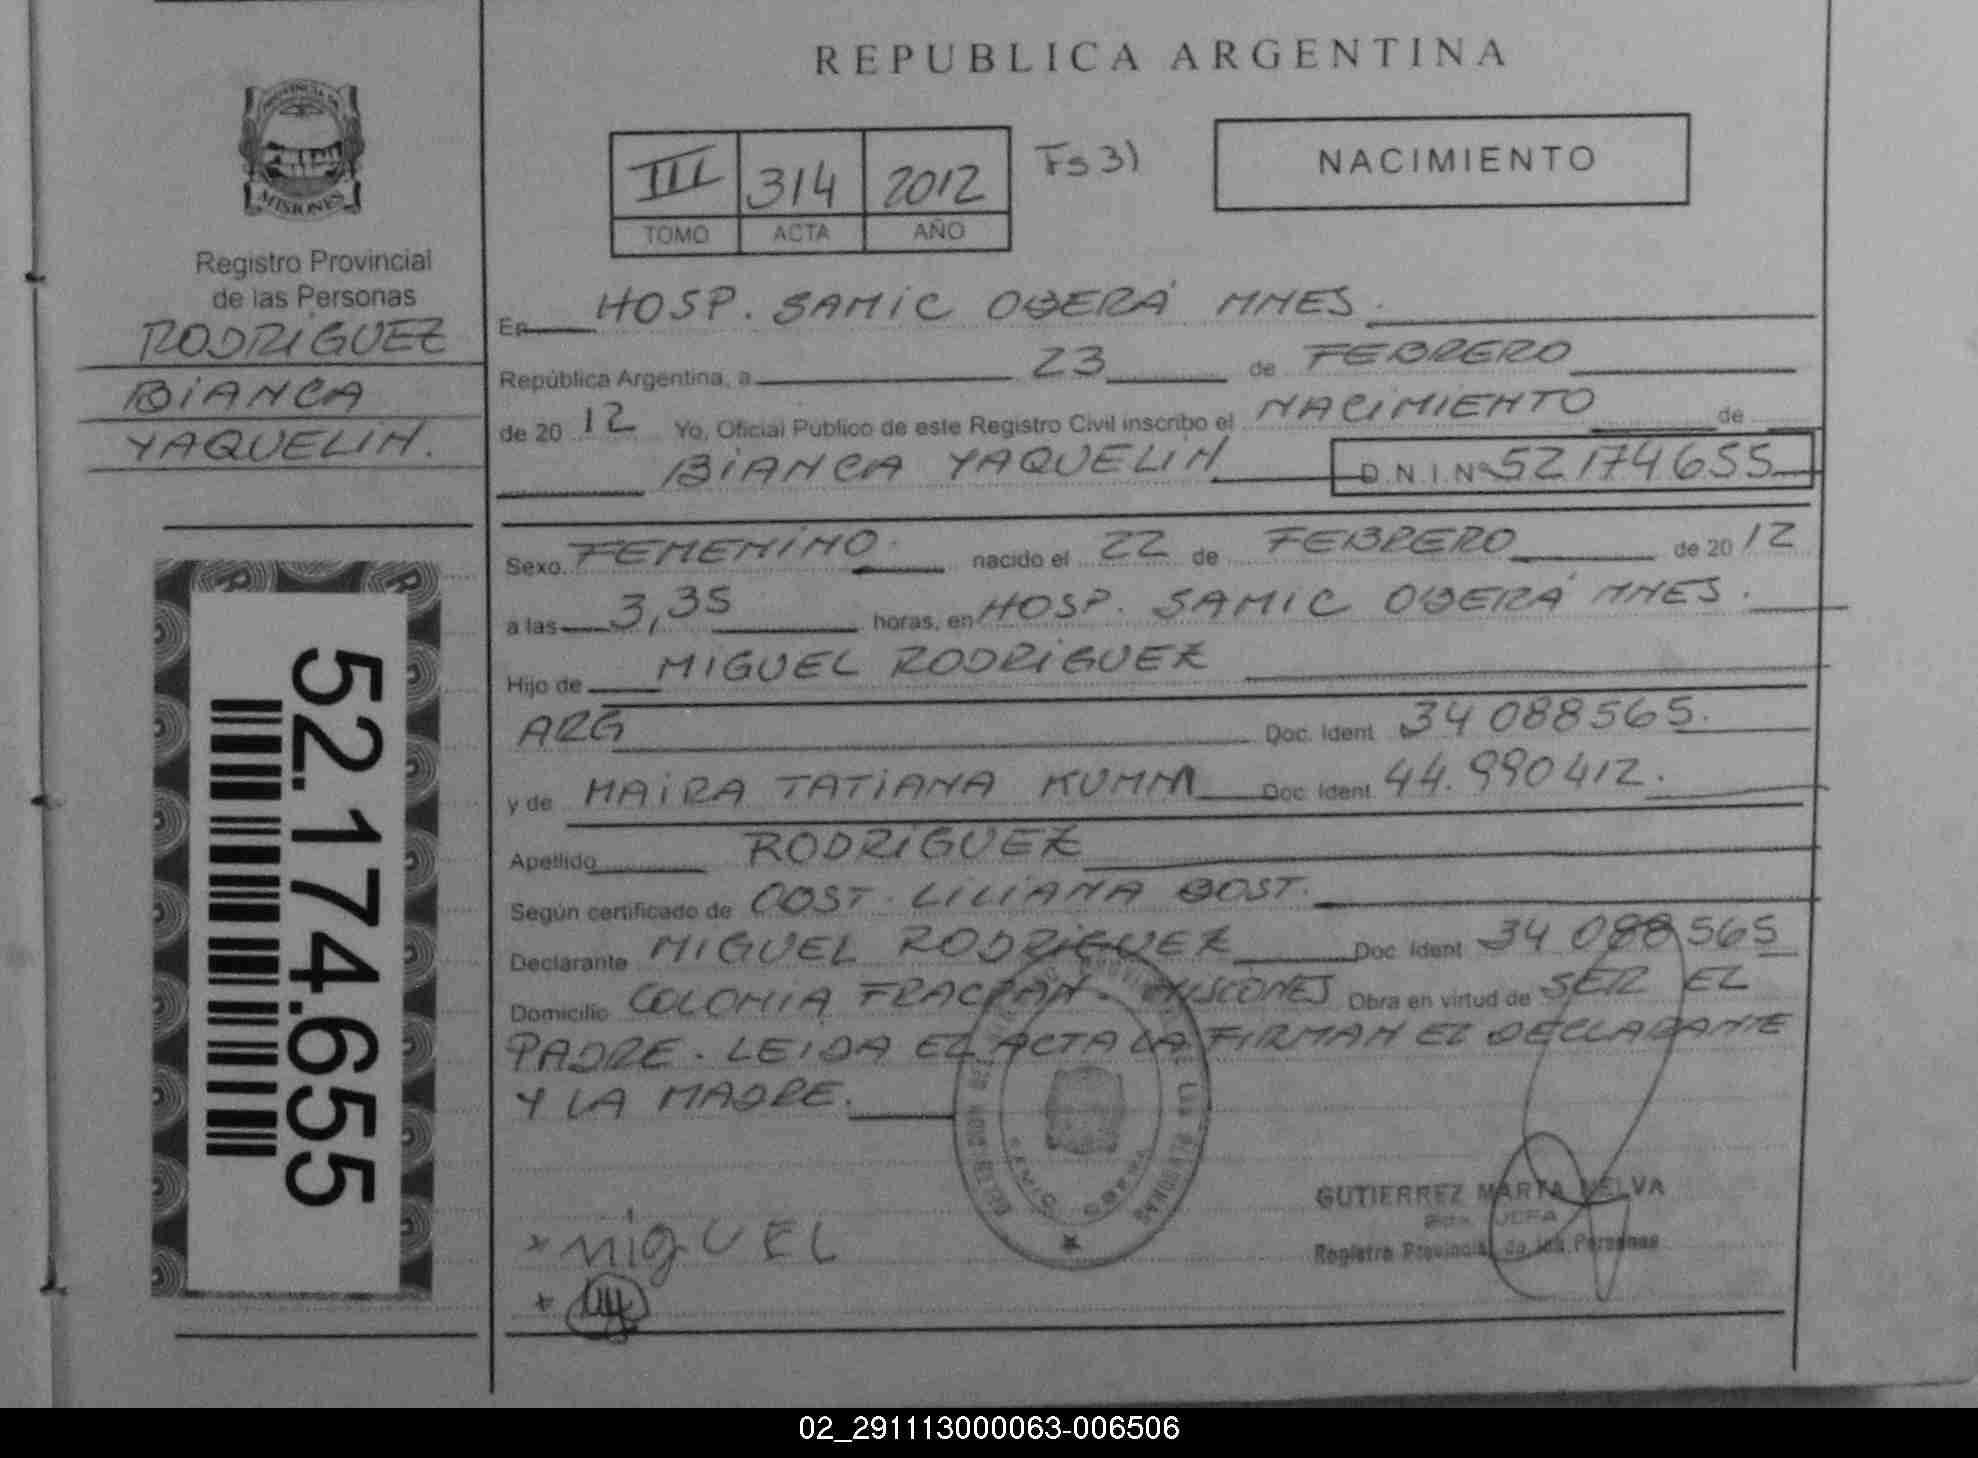 REPUBLICA ARGENTINA
PROVINCIA DE
MISIONES
Registro Provincial
de las Personas
RODRIGUEZ
BIANCA
YAQUELIN.
52.174.655
III 314 2012 Fs 31
TOMO ACTA AÑO
NACIMIENTO
En HOSP. SAMIC OBERÁ MNES.
República Argentina, a 23 de FEBRERO
de 20 12 Yo, Oficial Público de este Registro Civil inscribo el NACIMIENTO de
BIANCA YAQUELIN D.N.I. Nº 52174655
Sexo FEMENINO. nacido el 22 de FEBRERO de 20 12
a las 3,35 horas, en HOSP. SAMIC OBERÁ MNES.
Hijo de MIGUEL RODRIGUEZ
ARG Doc. Ident. 34 088565.
y de MAIRA TATIANA KUMM Doc. Ident. 44.990412.
Apellido RODRIGUEZ
Según certificado de OOST. LILIANA BOST.
Declarante MIGUEL RODRIGUEZ Doc. Ident 34 088565
Domicilio COLONIA FRACRAN. MISIONES Obra en virtud de SER EL
PADRE. LEIDA EL ACTA LA FIRMAN EL DECLARANTE
Y LA MADRE.
GUTIERREZ MARTA NELVA
JEFA
Registro Provincial de las Personas
x MIGUEL
x
02_291113000063-006506